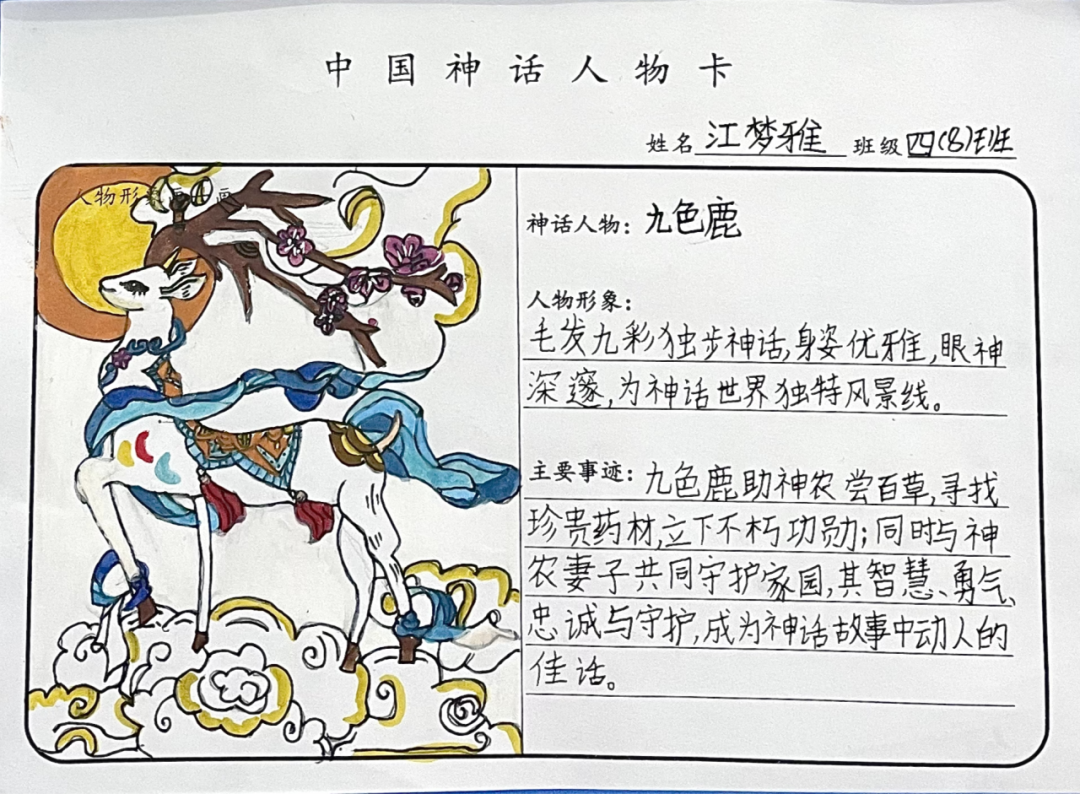 中国神话人物卡
姓名 江梦雅 班级 四(8)班
人物形象画一画
神话人物：九色鹿
人物形象：
毛发九彩独步神话,身姿优雅,眼神
深邃,为神话世界独特风景线。
主要事迹：九色鹿助神农尝百草,寻找
珍贵药材,立下不朽功勋;同时与神
农妻子共同守护家园,其智慧、勇气、
忠诚与守护,成为神话故事中动人的
佳话。